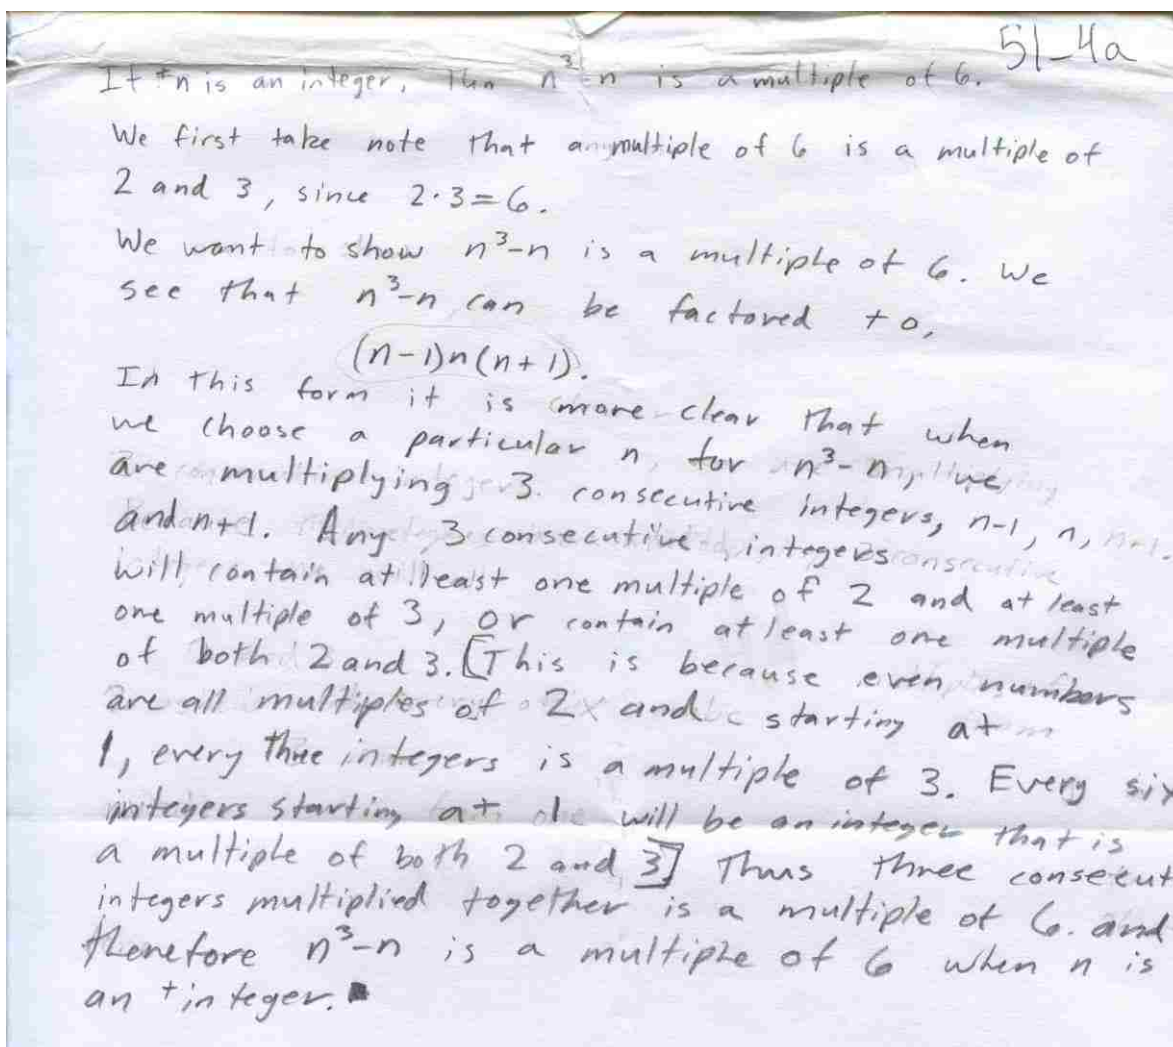 51-4a
If +n is an integer, then n³-n is a multiple of 6.
We first take note that any multiple of 6 is a multiple of
2 and 3, since 2·3=6.
We want to show n³-n is a multiple of 6. We
see that n³-n can be factored to,
(n-1)n(n+1).
In this form it is more clear that when
we choose a particular n, for n³-n, we
are multiplying 3 consecutive integers, n-1, n,
and n+1. Any 3 consecutive integers
will contain at least one multiple of 2 and at least
one multiple of 3, or contain at least one multiple
of both 2 and 3. [This is because even numbers
are all multiples of 2 and starting at
1, every three integers is a multiple of 3. Every six
integers starting at one will be an integer that is
a multiple of both 2 and 3] Thus three consecut
integers multiplied together is a multiple of 6. and
therefore n³-n is a multiple of 6 when n is
an +integer. ■